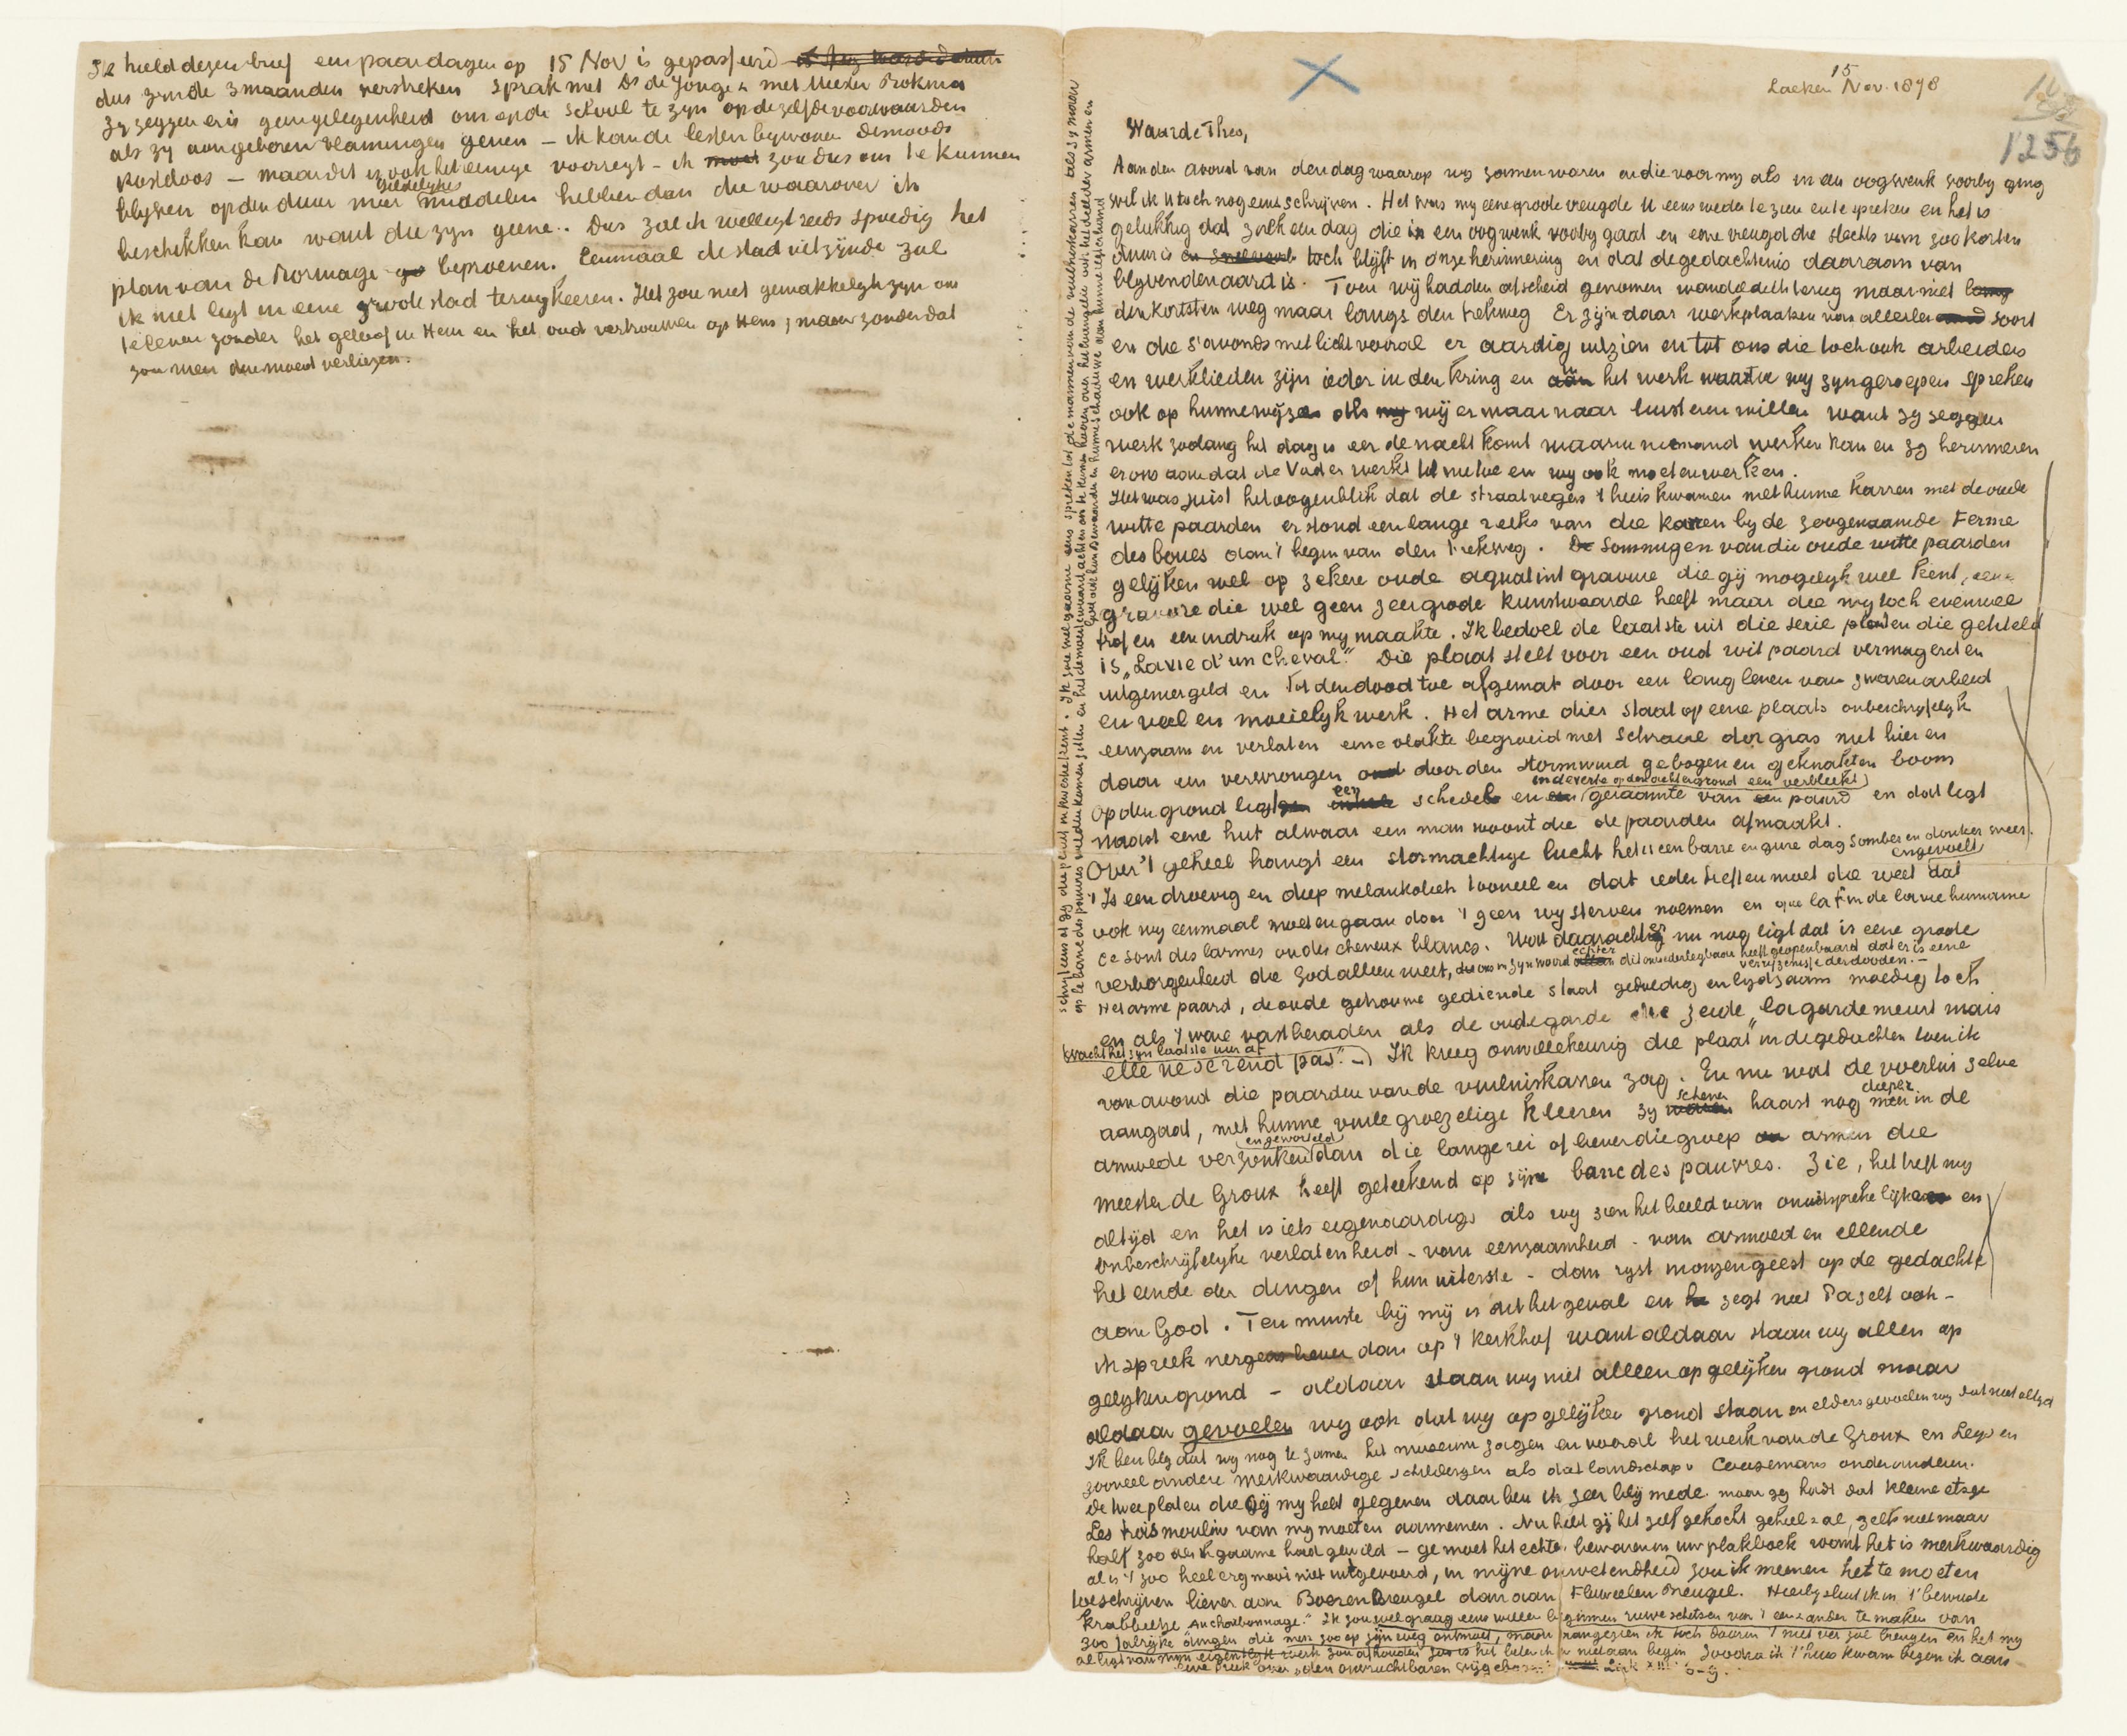 Ik hield dezen brief een paar dagen op 15 Nov is gepasseerd
dus zynde 3 maanden verstreken Sprak met Ds de Jonge & met Meester Bokma
zy zeggen er is geen gelegenheid om op de school te zyn op dezelfde voorwaarden
als zy aan geboren Vlamingen geven – ik kan de lessen bywonen desnoods
kosteloos – maar dit is ook het eenige voorregt – ik moet zou dus om te kunnen
geldelykes
blyven op den duur meer middelen hebben dan die waarover ik
beschikken kan want die zyn geene. Dus zal ik welligt reeds spoedig het
plan van de Borinage beproeven. Eenmaal de stad uit zijnde zal
ik niet ligt in eene groote stad terugkeeren. Het zou niet gemakkelyk zyn om
te leven zonder het geloof in Hem en het oud vertrouwen op Hem ; maar zonder dat
zou men den moed verliezen.
10
1256
15
Laeken Nov. 1878
Waarde Theo,
Aan den avond van den dag waarop wy zamen waren en die voor my als in een oogwenk voorby ging
wil ik U toch nog eens schrijven. Het was my eene groote vreugde U eens weder te zien en te spreken en het is
gelukkig dat zulk een dag die in een oogwenk voorby gaat en eene vreugd die slechts van zoo korten
duur is toch blyft in onze herinnering en dat de gedachtenis daaraan van
blyvenden aard is. Toen wij hadden afscheid genomen wandelde ik terug maar niet langs
den kortsten weg maar langs den trekweg Er zijn daar werkplaatsen van allerlei soort
en die s'avonds met licht vooral er aardig uitzien en tot ons die toch ook arbeiders
en werklieden zijn ieder in den kring en aan het werk waartoe wy zyn geroepen spreken
ook op hunne wyze als wij er maar naar luisteren willen want zy zeggen
werk zoolang het dag is eer de nacht komt waarin niemand werken kan en zy herinneren
er ons aan dat de Vader werkt tot nu toe en wy ook moeten werken.
Het was juist het oogenblik dat de straatvegers t'huis kwamen met hunne karren met de oude
witte paarden er stond een lange reeks van die karren by de zoogenaamde Ferme
des boues aan 't begin van den trekweg. De Sommigen van die oude witte paarden
gelijken wel op zekere oude aquatint gravure die gij mogelyk wel kent, eene
gravure die wel geen zeer groote kunstwaarde heeft maar die my toch evenwel
trof en een indruk op my maakte. Ik bedoel de laatste uit die serie platen die getiteld
is „La vie d'un cheval." Die plaat stelt voor een oud wit paard vermagerd en
uitgemergeld en tot den dood toe afgemat door een lang leven van zwaren arbeid
en veel en moeielyk werk. Het arme dier staat op eene plaats onbeschryfelyk
eenzaam en verlaten eene vlakte begroeid met schraal dor gras met hier en
daar een verwrongen door den stormwind gebogen en geknakten boom
in de verte op den achtergrond een verbleekt
Op den grond ligt een schedel en geraamte van een paard en dat ligt
naast eene hut alwaar een man woont die de paarden afmaakt.
Over 't geheel hangt een stormachtige lucht het is een barre en gure dag somber en donker weer.
en gevoelt
't Is een droevig en diep melankoliek tooneel en dat ieder treffen moet die weet dat
ook wy eenmaal moeten gaan door 't geen wy sterven noemen en que la fin de la vie humaine
ce sont des larmes ou des cheveux blancs. Wat daarachter nu nog ligt dat is eene groote
verborgenheid die God alleen weet, die ons in zyn woord echter dit onwederlegbaar heeft geopenbaard dat er is eene
verryzenisse der dooden. –
Het arme paard, de oude getrouwe gediende staat geduldig en lydzaam moedig toch
en als 't ware vastberaden als de oude garde die zeide „la garde meurt mais
wacht het zyn laatste uur af
elle ne se rend pas." –) Ik kreeg onwillekeurig die plaat in de gedachten toen ik
van avond die paarden van de vuilniskarren zag. En nu wat de voerlui zelve
aangaat, met hunne vuile groezelige kleeren zy schenen haast nog dieper in de
en geworteld
armoede verzonken dan die lange rei of liever die groep armen die
meester de Groux heeft geteekend op zijn banc des pauvres. Zie, het treft my
altyd en het is iets eigenaardigs als wy zien het beeld van onuitsprekelijke en
onbeschrijfelyke verlatenheid – van eenzaamheid – van armoed en ellende
het einde der dingen of hun uiterste – dan ryst in onzen geest op de gedachte
aan God. Ten minste bij mij is dit het geval en zegt niet Pa zelf ook –
ik spreek nergens liever dan op 't kerkhof want aldaar staan wy allen op
gelyken grond – aldaar staan wy niet alleen op gelijken grond maar
aldaar gevoelen wy ook dat wy op gelijken grond staan en elders gevoelen wy dat niet altyd
Ik ben bly dat wy nog te zamen het museum zagen en vooral het werk van de Groux en Leys en
zooveel andere merkwaardige schilderyen als dat landschap v Coosemans onder anderen.
De twee platen die Gij my hebt gegeven daar ben ik zeer blij mede maar gy hadt dat kleine etsje
Les trois moulins van my moeten aannemen. Nu hebt gij het zelf gekocht geheel & al, zelfs niet maar
half zoo als ik gaarne had gewild – ge moet het echter bewaren in uw plakboek want het is merkwaardig
al is 't zoo heel erg mooi niet uitgevoerd, in mijne onwetendheid zou ik meenen het te moeten
toeschrijven liever aan Boeren Breugel dan aan Fluweelen Breugel. Hierby sluit ik in 't bewuste
krabbeltje „Au charbonnage." Ik zou wel graag eens willen beginnen ruwe schetsen van 't een & ander te maken van
zoo talrijke dingen die men zoo op zijn weg ontmoet, maar aangezien ik toch daarin 't niet ver zal brengen en het my
al ligt van myn eigentlyk werk zou afhouden is het beter ik er niet aan begin Zoodra ik t'huis kwam begon ik aan
eene preek over „den onvruchtbaren vijgeboom Luk XIII: 6-9.
schryf eens als gy die pen in kwestie zent. Ik zou wel gaarne eens spreken tot de mannen van de vuilniskarren als zy maar
op le banc des pauvres